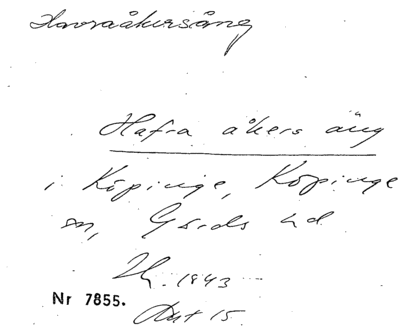 Havraåkersäng
Hafra åkers äng
i Köpinge, Köpinge
sn, Gärds hd
1843
Nr 7855.
Akt 15